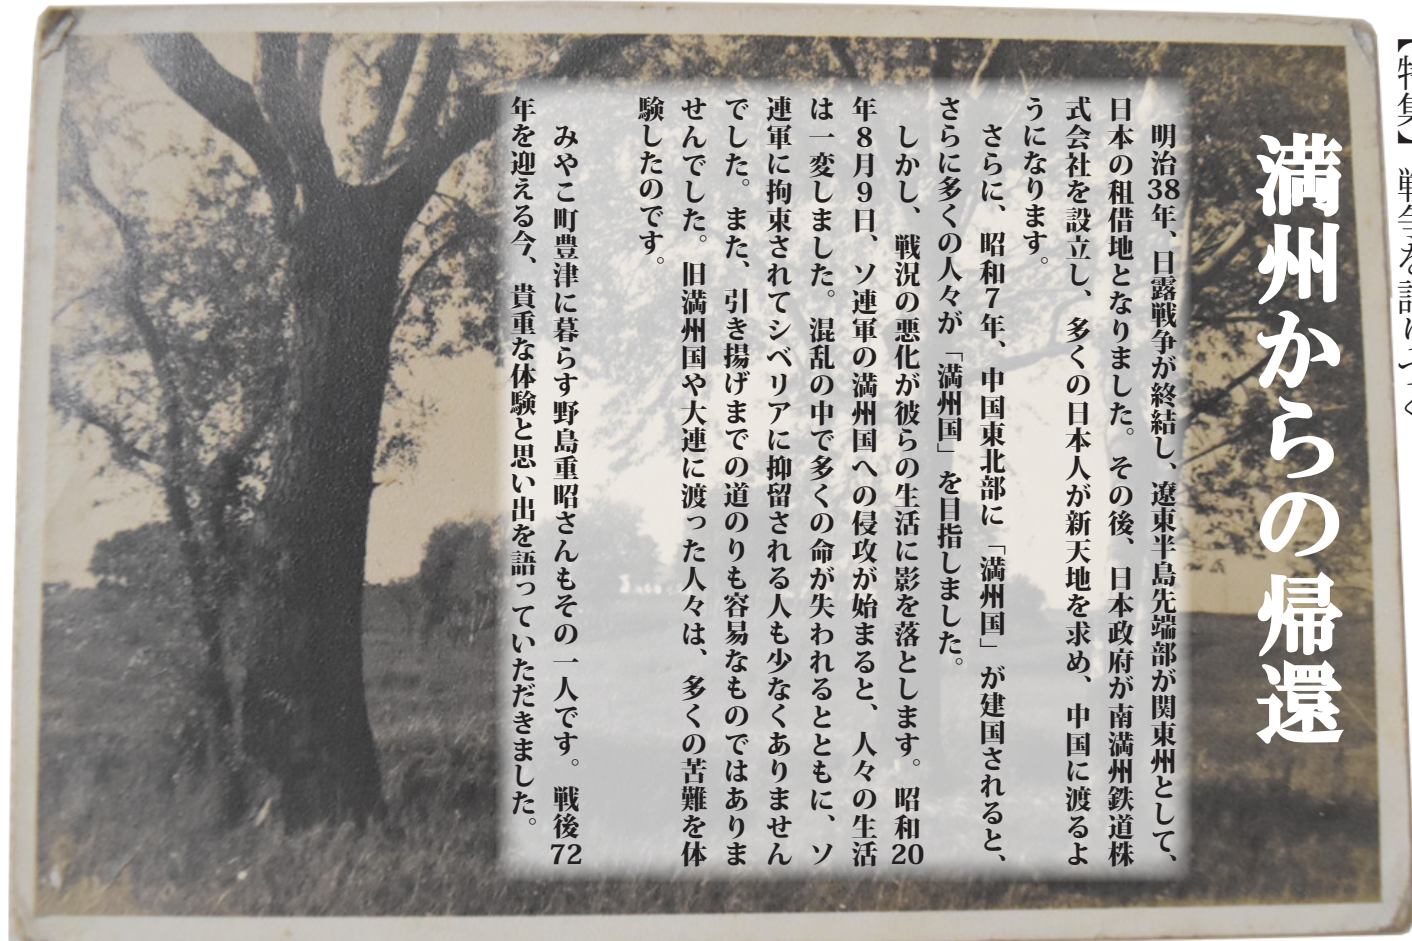 【特集】戦争を語りつぐ
満州からの帰還
明治38年、日露戦争が終結し、遼東半島先端部が関東州として、
日本の租借地となりました。その後、日本政府が南満州鉄道株
式会社を設立し、多くの日本人が新天地を求め、中国に渡るよ
うになります。
さらに、昭和7年、中国東北部に「満州国」が建国されると、
さらに多くの人々が「満州国」を目指しました。
しかし、戦況の悪化が彼らの生活に影を落とします。昭和20
年8月9日、ソ連軍の満州国への侵攻が始まると、人々の生活
は一変しました。混乱の中で多くの命が失われるとともに、ソ
連軍に拘束されてシベリアに抑留される人も少なくありません
でした。また、引き揚げまでの道のりも容易なものではありま
せんでした。旧満州国や大連に渡った人々は、多くの苦難を体
験したのです。
みやこ町豊津に暮らす野島重昭さんもその一人です。戦後72
年を迎える今、貴重な体験と思い出を語っていただきました。